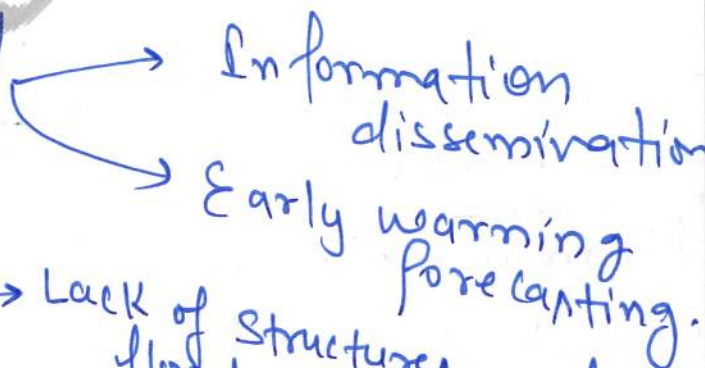 → Information
dissemination
→ Early warning
forecasting.
→ Lack of structure